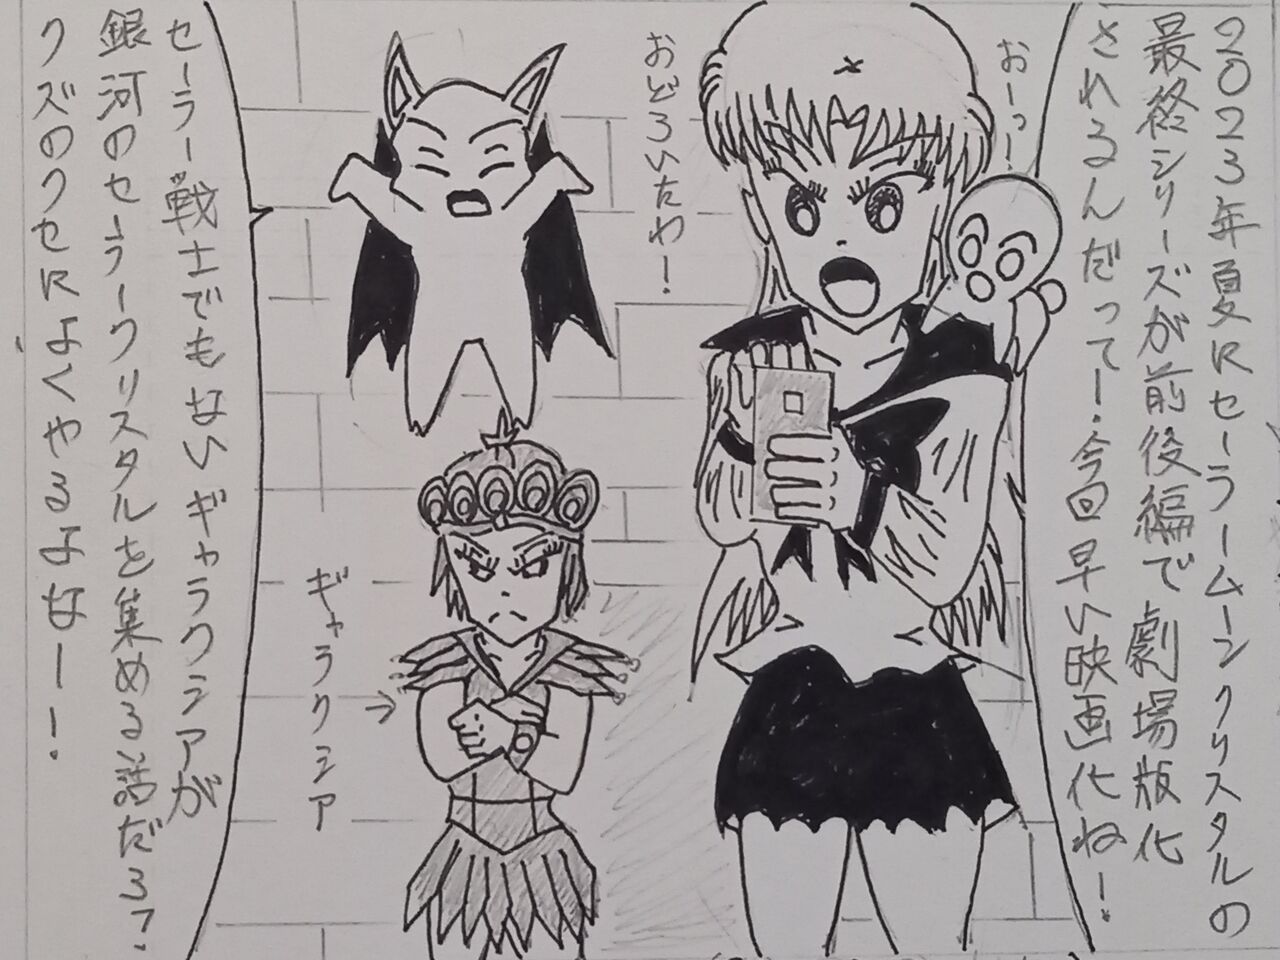 2023年夏にセーラームーンクリスタルの
最終シリーズが前後編で劇場版化
されるんだってー!今回早い映画化ね!
おーっ!
おどろいたわ!
ギャラクシア
セーラー戦士でもないギャラクシアが
銀河のセーラークリスタルを集める話だろ?
クズのクセによくやるよなー!